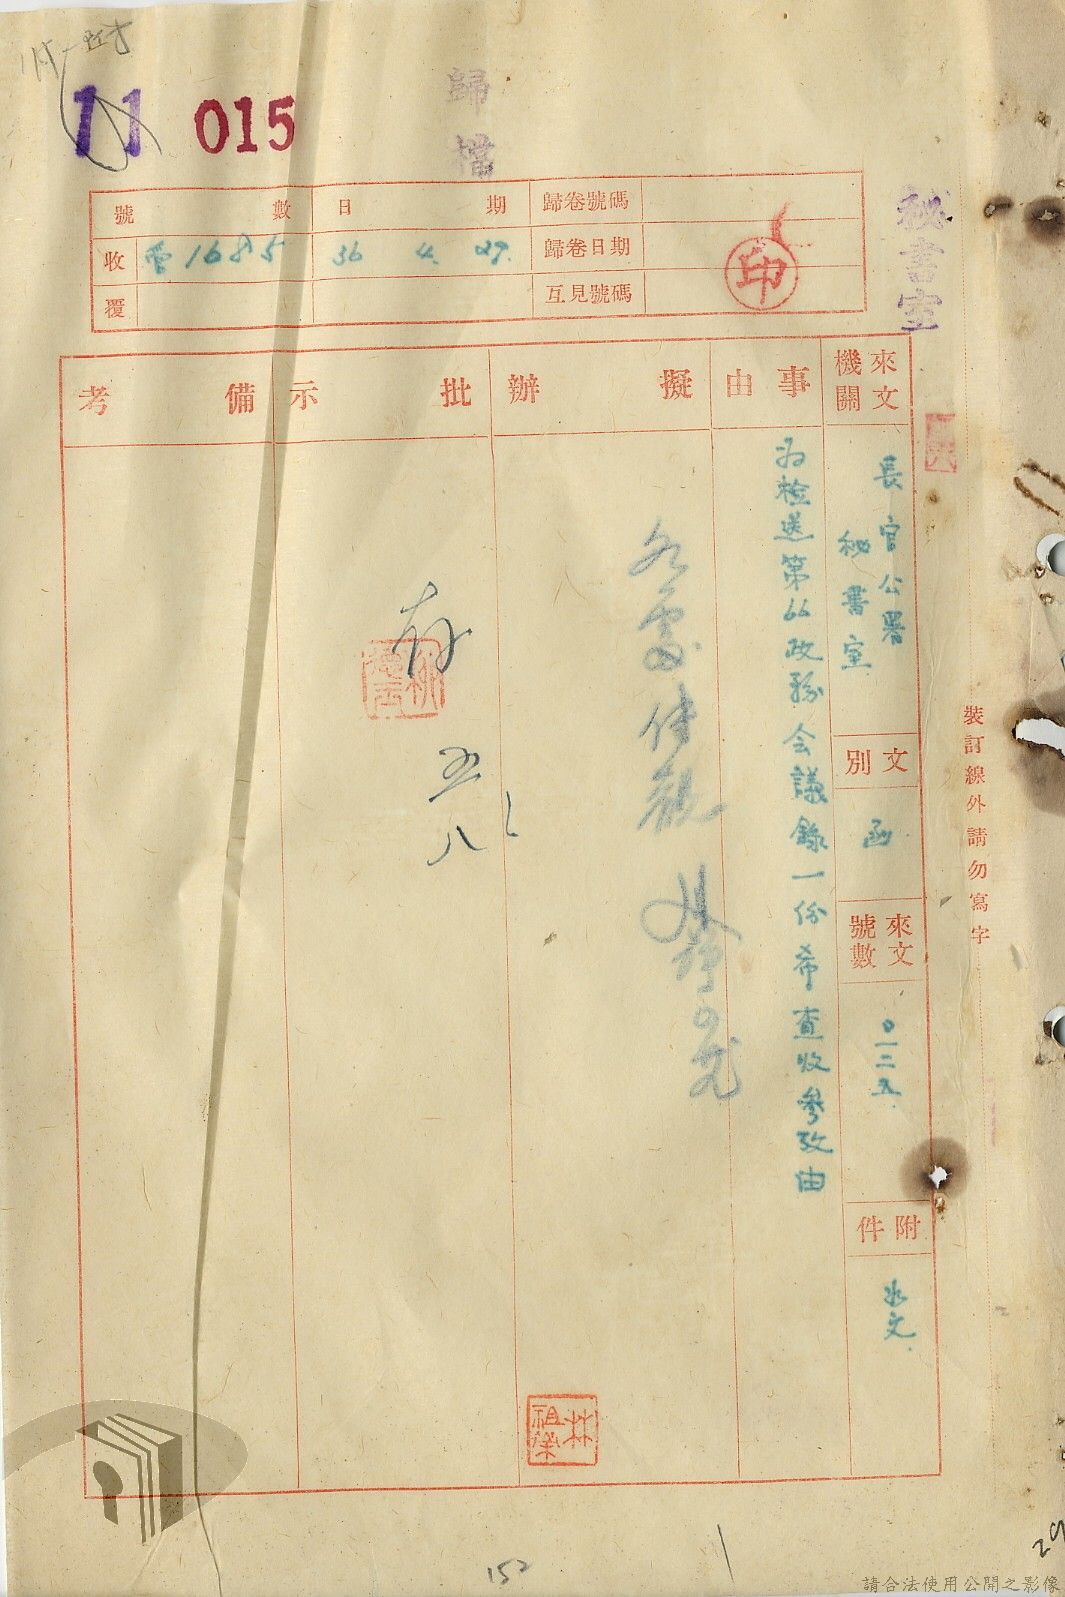 11 015
歸檔
秘書室
號數 日期 歸卷號碼
收 1685 36 4. 29. 歸卷日期
覆 互見號碼
印
來文機關
長官公署
秘書室
文別
函
來文號數
〇一二九
附件
事由
為檢送第66政務會議錄一份希查收參攷由
擬辦
批示
存
五
八
備考
林祖榮
裝訂線外請勿寫字
152
29
請合法使用公開之影像